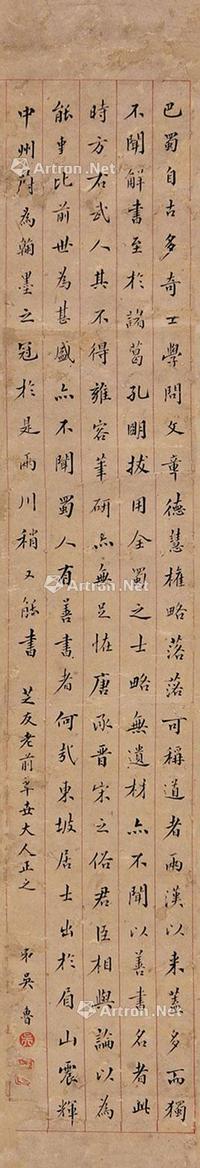 巴蜀自古多奇士學問文章德慧權略落落可稱道者兩漢以来蓋多而獨
不聞解書至於諸葛孔明拔用全蜀之士略無遺材亦不聞以善書名者此
時方右武人其不得雍容筆研亦無足怪唐承晉宋之俗君臣相與論以為
能事比前世為甚盛亦不聞蜀人有善書者何哉東坡居士出於眉山震輝
中州蔚為翰墨之冠於是兩川稍又能書 芝友老前輩世大人正之 弟吳魯
Artron.Net
Artron.Net
Artron.Net
Artron.Net